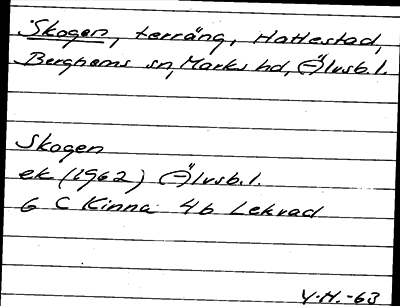 Skogen, terräng, Hattestad,
Berghems sn, Marks hd, Älvsb.l.
Skogen
ek (1962) Älvsb.l.
6 C Kinna 4b Lekvad
Y.H.-63